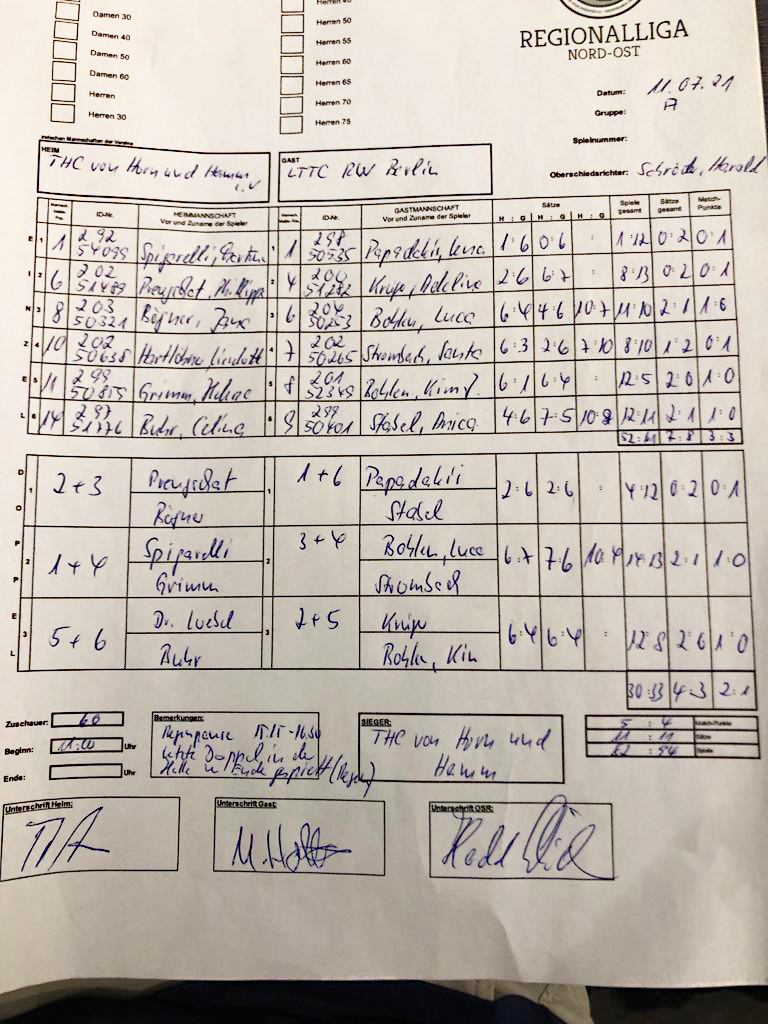 Damen 30
Damen 40
Damen 50
Damen 60
Herren
Herren 30
Herren 50
Herren 55
Herren 60
Herren 65
Herren 70
Herren 75
REGIONALLIGA
NORD-OST
Datum: 11.07.21
Gruppe: A
Spielnummer:
Oberschiedsrichter: Schröder, Harald
zwischen Mannschaften der Vereine
HEIM THC von Horn und Hamm
GAST LTTC RW Berlin
ID-Nr. HEIMMANNSCHAFT Vor und Zuname der Spieler ID-Nr. GASTMANNSCHAFT Vor und Zuname der Spieler Sätze H : G H : G H : G Spiele gesamt Sätze gesamt Match-Punkte
1 1 292 54099 Spigarelli, 1 1 298 50535 Papadakis, 1:6 0:6 : 1:12 0:2 0:1
2 6 202 51489 2 4 200 51282 2:6 6:7 8:13 0:2 0:1
3 8 203 50321 Rößner, 3 6 204 50253 Bohlen, Luca 6:4 4:6 10:7 11:10 2:1 1:0
4 10 202 50638 4 7 202 50265 Strombach, 6:3 2:6 7:10 8:10 1:2 0:1
5 11 299 50815 Grimm, 5 8 201 52349 Bohlen, 6:1 6:4 12:5 2:0 1:0
6 14 297 51776 Buhr, Celina 6 9 299 50401 Stabel, Anica 4:6 7:5 10:8 12:11 2:1 1:0
52:61 7:8 3:3
DOPPEL
1 2+3 Rößner 1 1+6 Stabel 2:6 2:6 : 4:12 0:2 0:1
2 1+4 Spigarelli Grimm 2 3+4 Bohlen, Luca Strombach 6:7 7:6 10:4 14:13 2:1 1:0
3 5+6 Buhr 3 2+5 Bohlen, Kim 6:4 6:4 : 12:8 2:0 1:0
30:33 4:3 2:1
Zuschauer: 60
Beginn: 11:00 Uhr
Ende: Uhr
Bemerkungen:
Regenpause 15.15-16.30
letzte Doppel in der
Halle zu Ende gespielt (Regen)
SIEGER:
THC von Horn und
Hamm
5 : 4 Match-Punkte
11 : 11 Sätze
82 : 94 Spiele
Unterschrift Heim:
Unterschrift Gast:
Unterschrift OSR: